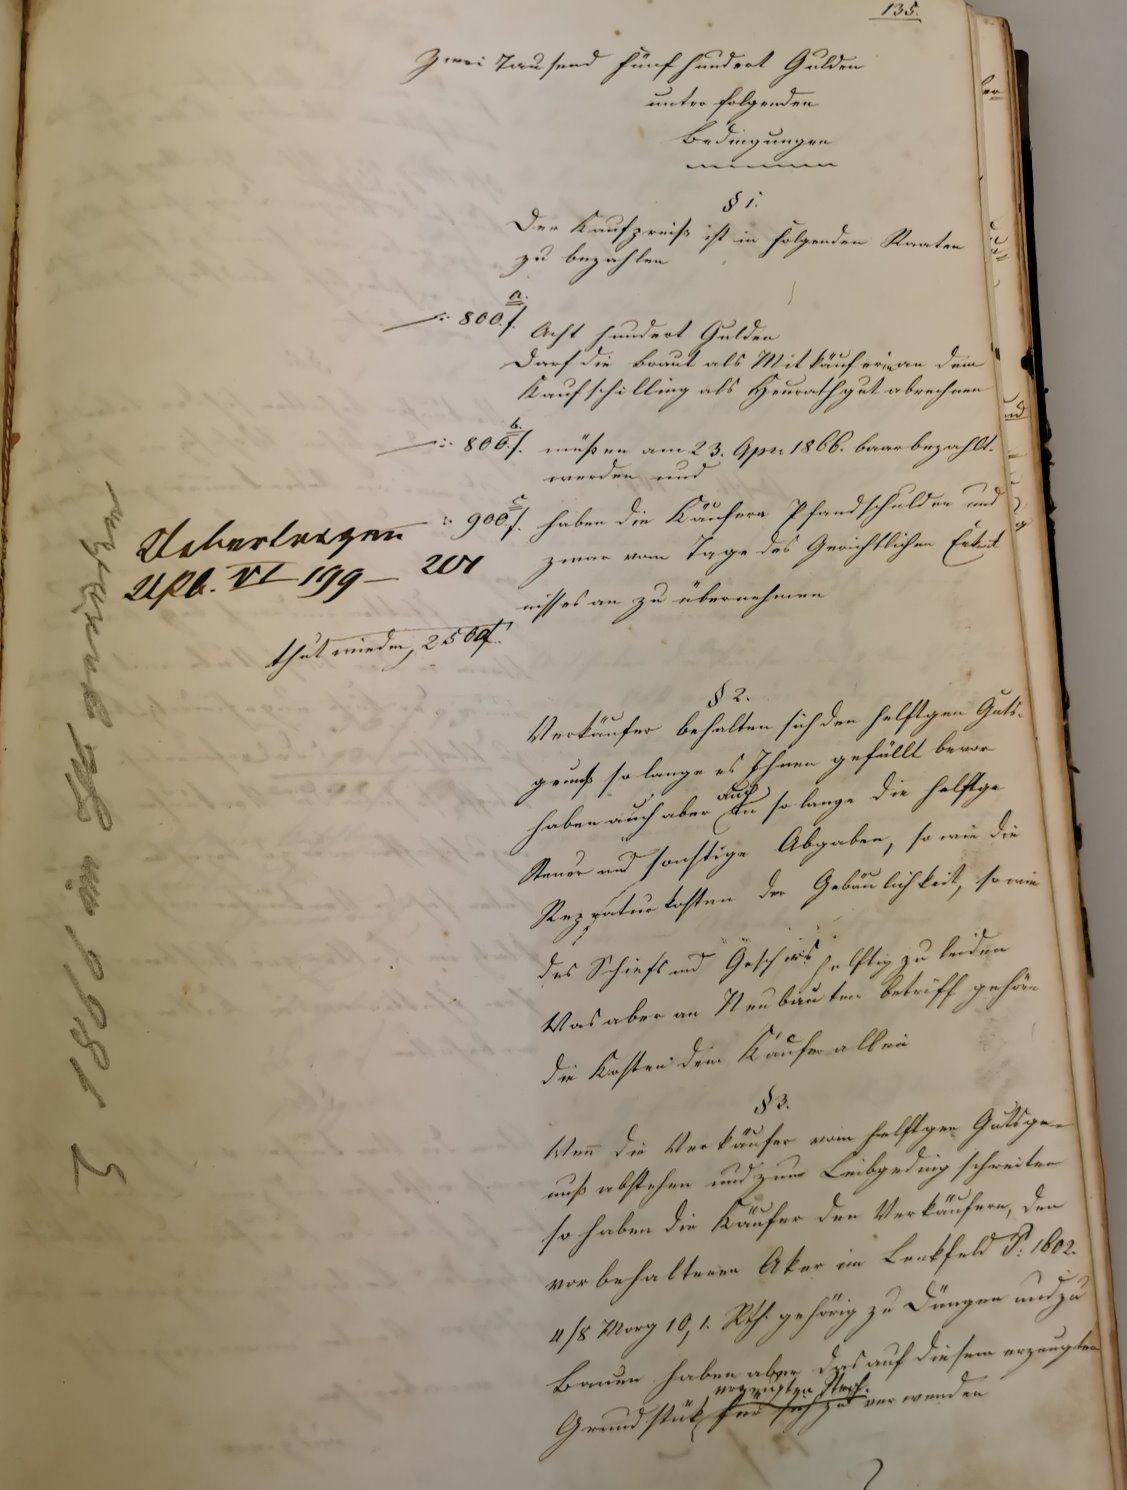 135.
Zwei Tausend fünf hundert Gulden
unter folgenden
Bedingungen
§ 1.
Der Kaufpreiß ist in folgenden Raaten
zu bezahlen
a.
800 f. Acht hundert Gulden
Darf die Braut als Mitkäuferin an dem
Kaufschilling als Heurathgut abrechnen
b.
800 f. müßen am 23. Apr. 1866. baar bezahlt
werden und
c.
900 f. haben die Käufern Pfandschulden und
zwar vom Tage des Gerichtlichen Erkent
nisses an zu übernehmen
Uebertragen
UPb. VI 199 – 201
thut wieder, 2500 f.
§ 2.
Verkäufer behalten sich den helftgen Guts-
genuß so lange es Ihnen gefällt bevor
haben auch aber auch so lange die helftge
Steuer und sonstige Abgaben, so wie die
Repratur kosten der Gebäulichkeit, so wie
des Schiefs und Geschirs helftig zu leiden
Was aber an Neubauten betriff gehöre
die Kosten dem Käufer allein
§ 3.
Wenn die Verkäufer vom helftgen Gutsge-
nuß abstehen und zum Leibgeding schreiten
so haben die Käufer den Verkäufern, den
vorbehaltenen Aker im Lenkfeld P: 1802.
4/8 Morg 10,1. Rth. gehörig zu Düngen und zu
Bauen haben aber das auf diesem erzeugten
erzeugten Stroh.
Grundstük für sich zu verwenden